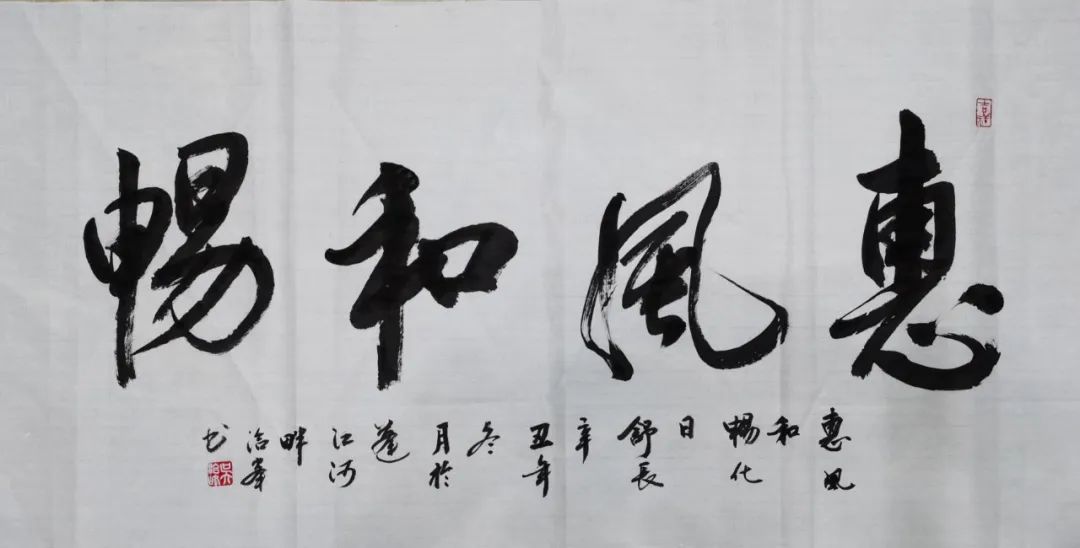 惠風和暢
惠風
和
暢化
日
舒長
辛
丑年
冬
月於
蓬
江河
畔
洽峯
书
吉祥